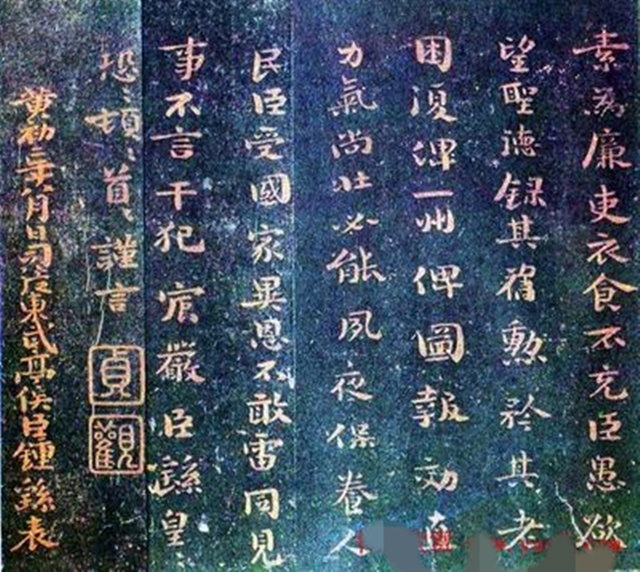 素為廉吏衣食不充臣愚欲
望聖德錄其舊勳矜其老
困復俾一州俾圖報効直
力氣尚壯必能夙夜保養人
民臣受國家異恩不敢雷同見
事不言干犯宸嚴臣繇皇
恐〻頓〻首〻謹言
貞觀
黃初二年八月日司徒東武亭侯臣鍾繇表